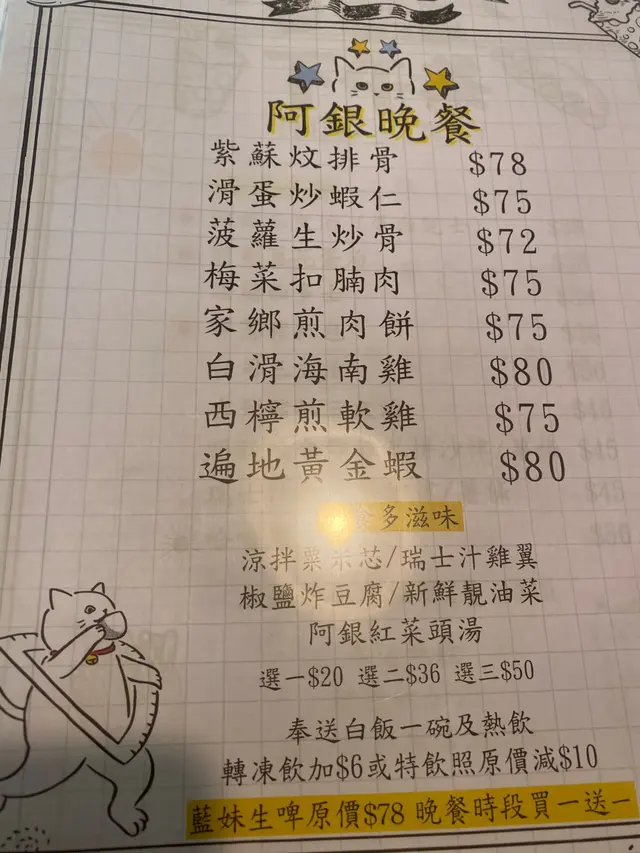 阿銀晚餐
紫蘇炆排骨 $78
滑蛋炒蝦仁 $75
菠蘿生炒骨 $72
梅菜扣腩肉 $75
家鄉煎肉餅 $75
白滑海南雞 $80
西檸煎軟雞 $75
遍地黃金蝦 $80
多滋味
涼拌粟米芯/瑞士汁雞翼
椒鹽炸豆腐/新鮮靚油菜
阿銀紅菜頭湯
選一$20 選二$36 選三$50
奉送白飯一碗及熱飲
轉凍飲加$6或特飲照原價減$10
藍妹生啤原價$78 晚餐時段買一送一